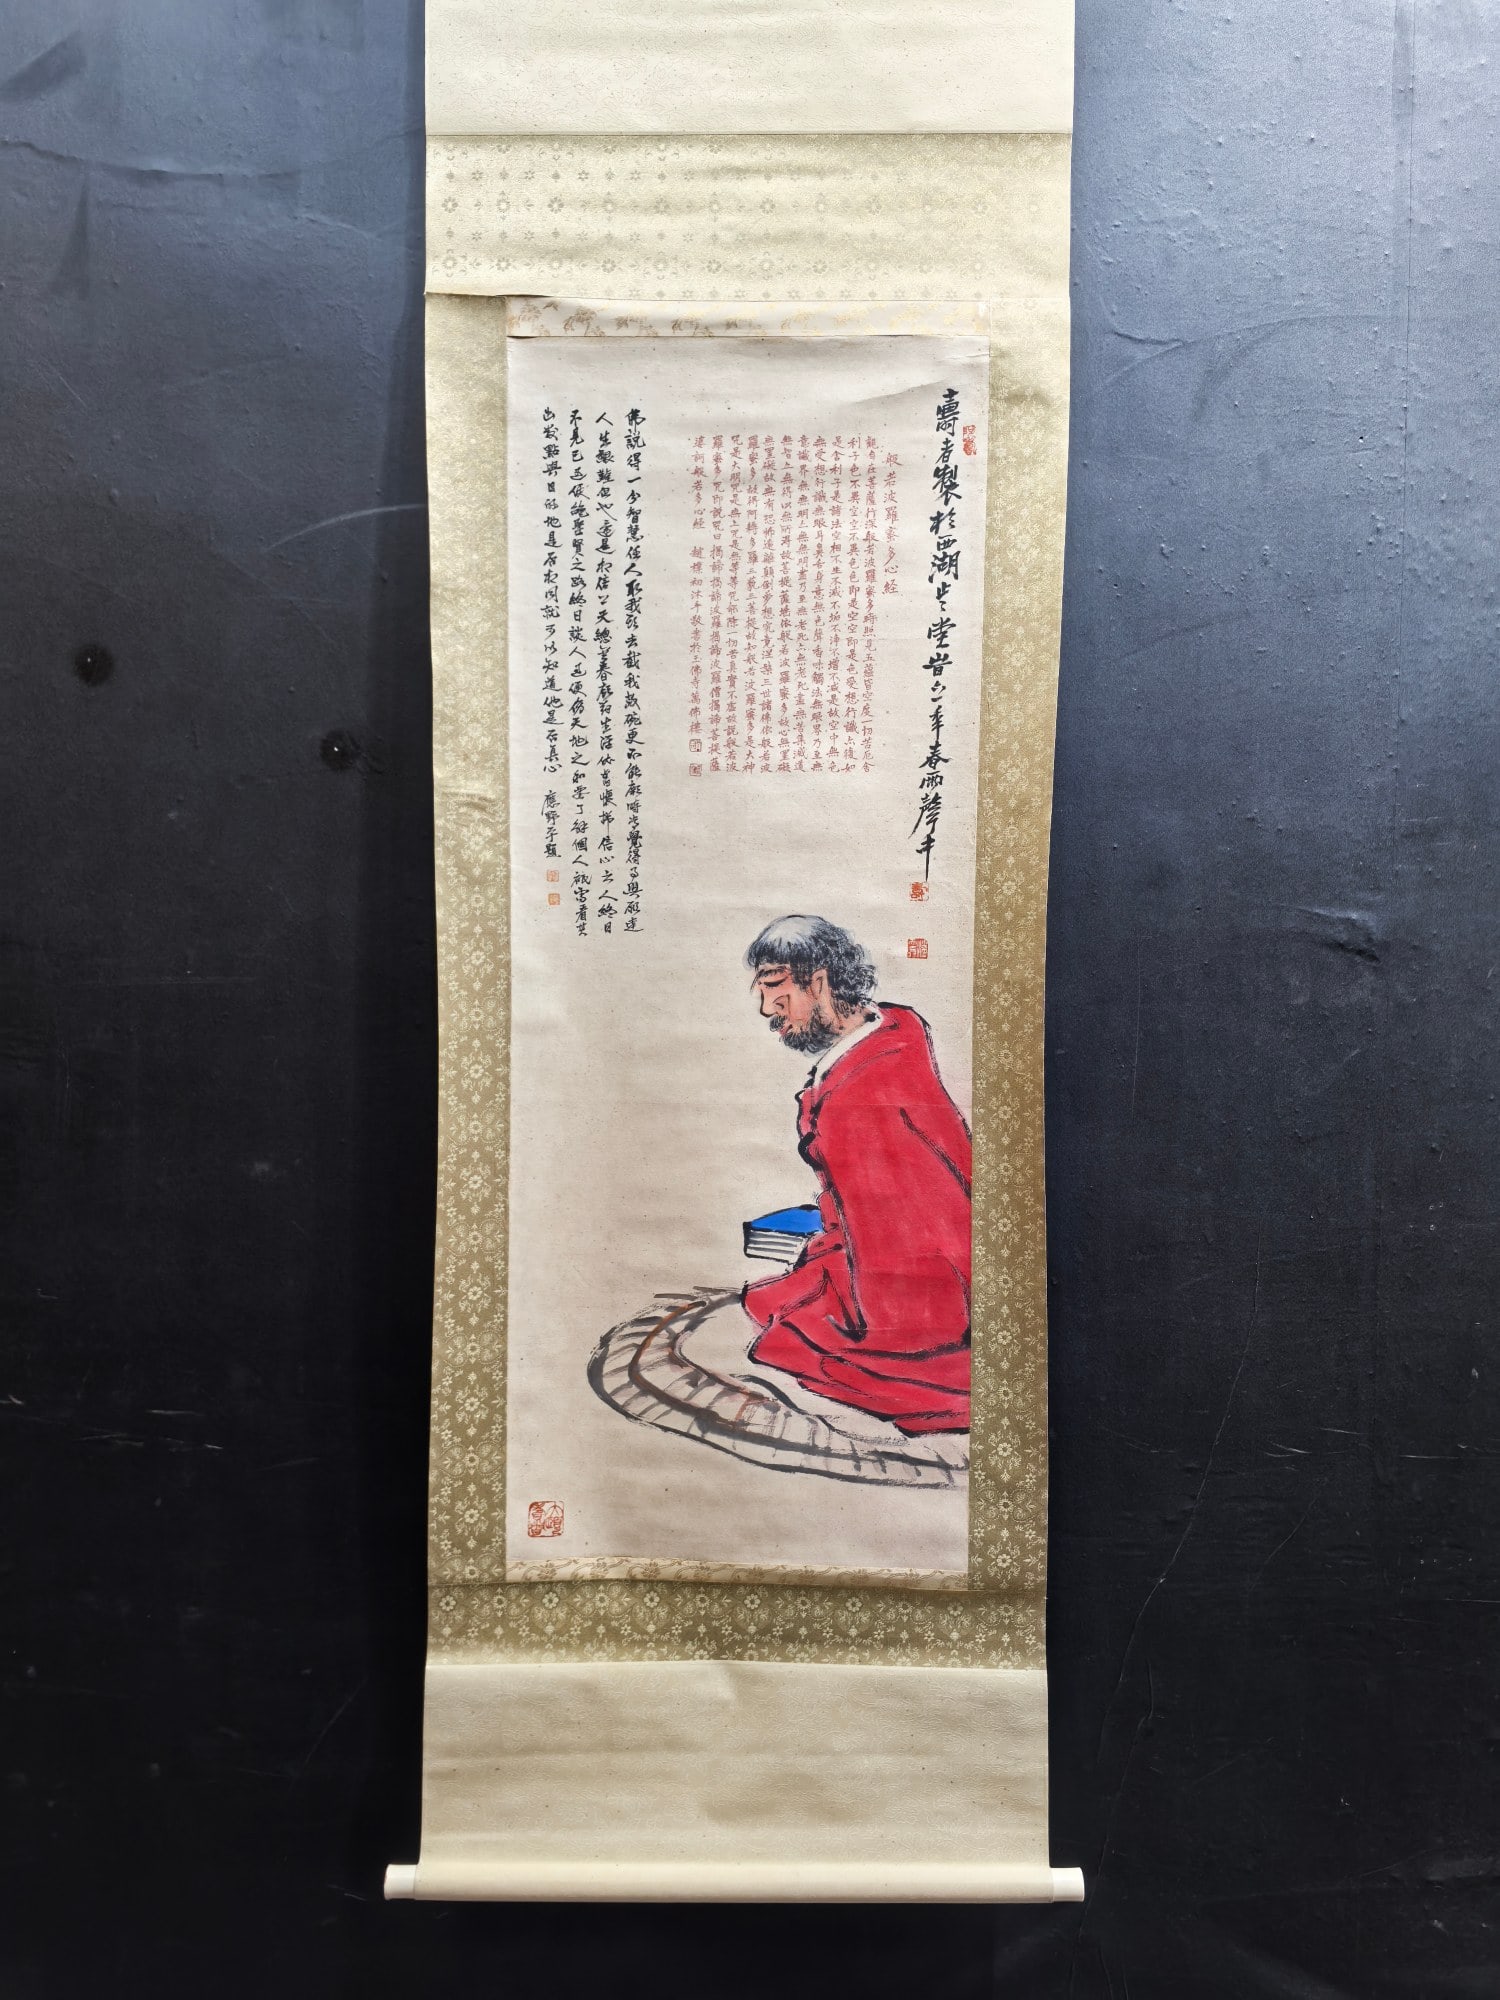 壽者製於西湖止止堂昔之年春雨聲中
般若波羅蜜多心經
觀自在菩薩行深般若波羅蜜多時照見五蘊皆空度一切苦厄舍
利子色不異空空不異色色即是空空即是色受想行識亦復如
是舍利子是諸法空相不生不滅不垢不淨不增不減是故空中無色
無受想行識無眼耳鼻舌身意無色聲香味觸法無眼界乃至無
意識界無無明亦無無明盡乃至無老死亦無老死盡無苦集滅道
無智亦無得以無所得故菩提薩埵依般若波羅蜜多故心無罣礙
無罣礙故無有恐怖遠離顛倒夢想究竟涅槃三世諸佛依般若波
羅蜜多故得阿耨多羅三藐三菩提故知般若波羅蜜多是大神
咒是大明咒是無上咒是無等等咒能除一切苦真實不虛故說般若波
羅蜜多咒即說咒曰揭諦揭諦波羅揭諦波羅僧揭諦菩提薩
婆訶般若多心經 趙樸初沐手敬書於玉佛寺萬佛樓
佛說得一分智慧任人取我不能廟時當覺得事與願違
人生艱難但心還是相信公天總生活依舊信心之人終日
不見己過便絕聖賢之路終日談人過便傷天地之和要了解個人祇需看其
出發點與目的地是否相同就可以知道他是否真心 應野平題